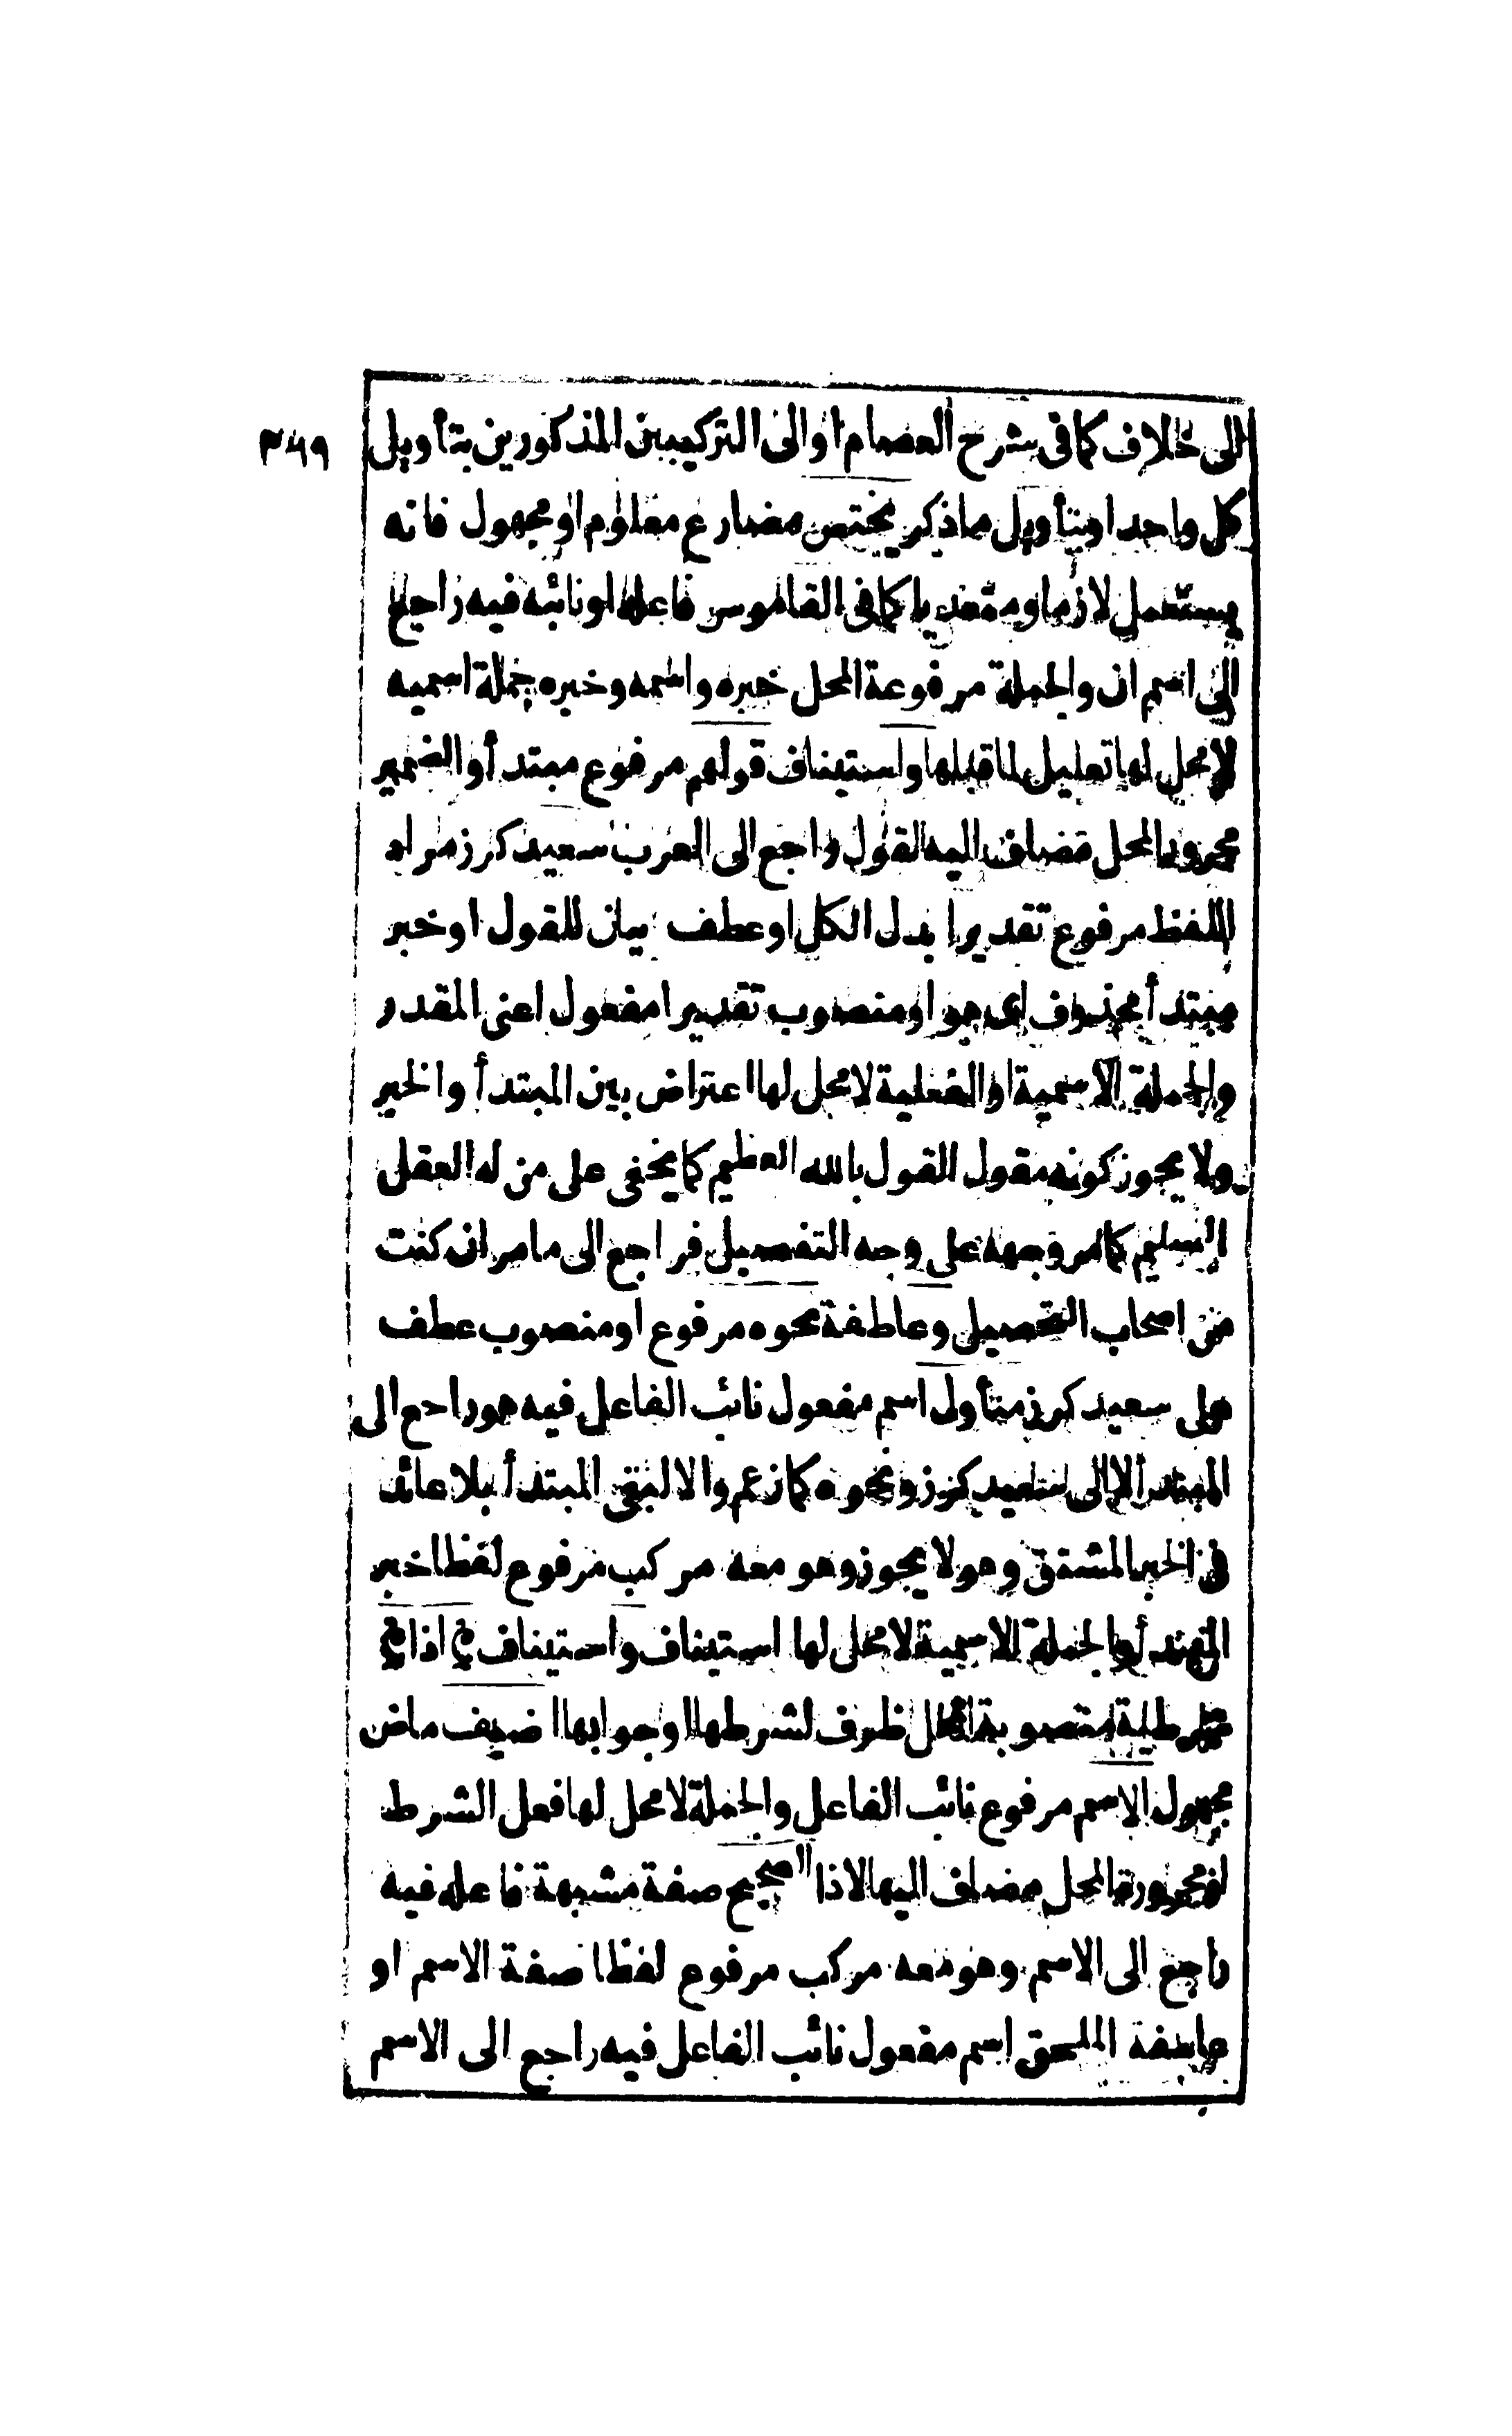 ٣٤٩
الى خلاف كما فى شرح العصام او الى التركيبين المذكورين بتأويل
كل واحد او بتأويل ماذكر يختص مضارع معلوم او مجهول فانه
يستعمل لازما ومتعديا كما فى القاموس فاعله او نائبه فيه راجع
الى اسم ان والجملة مرفوعة المحل خبره واسمه وخبره جملة اسميه
لامحل لها تعليل لما قبلها واستيناف قولهم مرفوع مبتدأ والضمير
مجرور المحل مضاف اليه لقول راجع الى العرب سعيد كرز مراد
اللفظ مرفوع تقديرا بدل الكل او عطف بيان للقول او خبر
مبتدأ محذوف اى هو او منصوب تقديرا مفعول اعنى المقدر
والجملة الاسمية او الفعلية لامحل لها اعتراض بين المبتدأ والخبر
ولا يجوز كونه مقول القول بالله العظيم كما يخفى على من له العقل
السليم كما مر وجهه على وجه التفصيل فراجع الى ما مر ان كنت
من اصحاب التحصيل وعاطفة نحوه مرفوع او منصوب عطف
على سعيد كرز متأول اسم مفعول نائب الفاعل فيه هو راجع الى
المبتدأ لا الى سعيد كرز ونحوه كما زعم والا لبقى المبتدأ بلا عائد
فى الخبر المشتق وهو لا يجوز وهو معه مركب مرفوع لفظا خبر
المبتدأ والجملة الاسمية لامحل لها استيناف واستيناف اذا
شرطية منصوبة المحل ظرف لشرطها او جوابها اضيف ماض
مجهول الاسم مرفوع نائب الفاعل والجملة لامحل لها فعل الشرط
او مجرورة المحل مضاف اليها لاذا الصحيح صفة مشبهة فاعله فيه
راجع الى الاسم وهو معه مركب مرفوع لفظا صفة الاسم او
عاطفة الملحق اسم مفعول نائب الفاعل فيه راجع الى الاسم